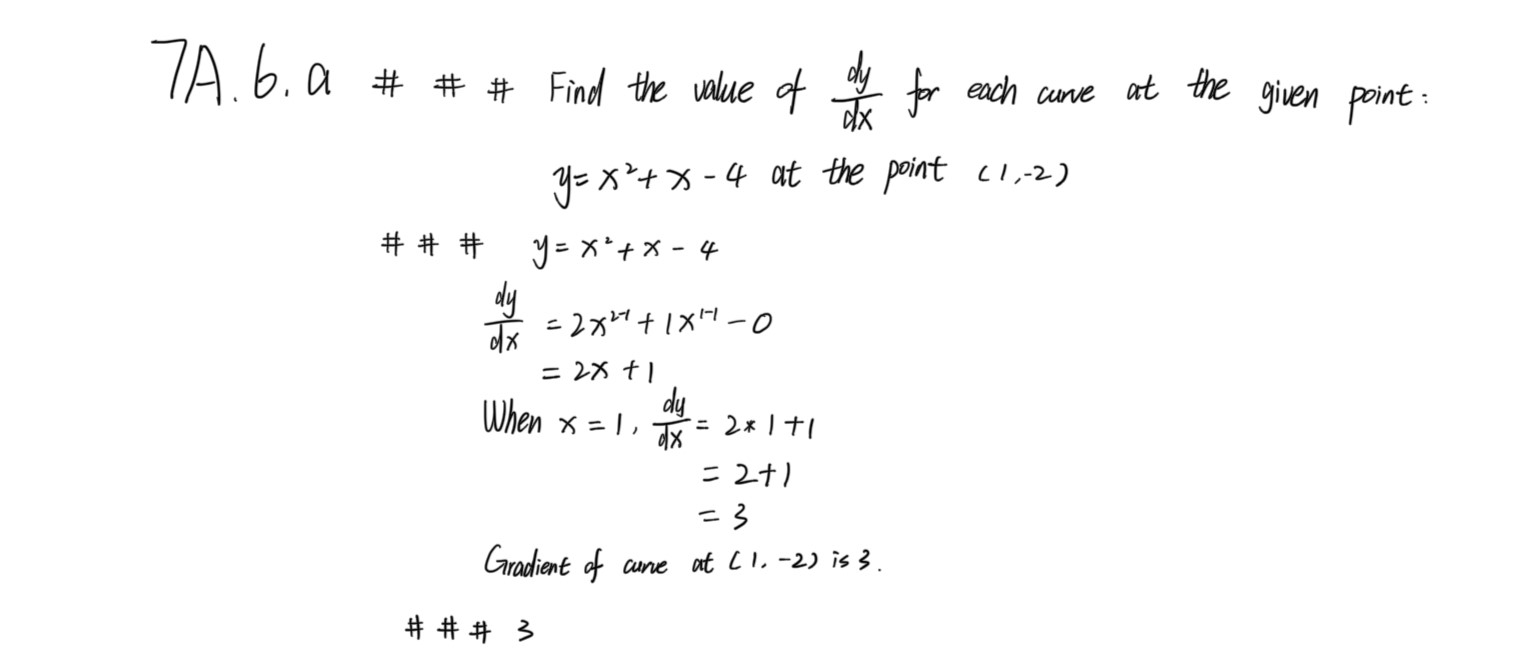 7A.6.a # # # Find the value of dy/dx for each curve at the given point:
y = x² + x - 4 at the point (1,-2)
# # # y = x² + x - 4
dy/dx = 2x²⁻¹ + 1x¹⁻¹ - 0
= 2x + 1
When x = 1, dy/dx = 2 * 1 + 1
= 2 + 1
= 3
Gradient of curve at (1, -2) is 3.
# # # 3